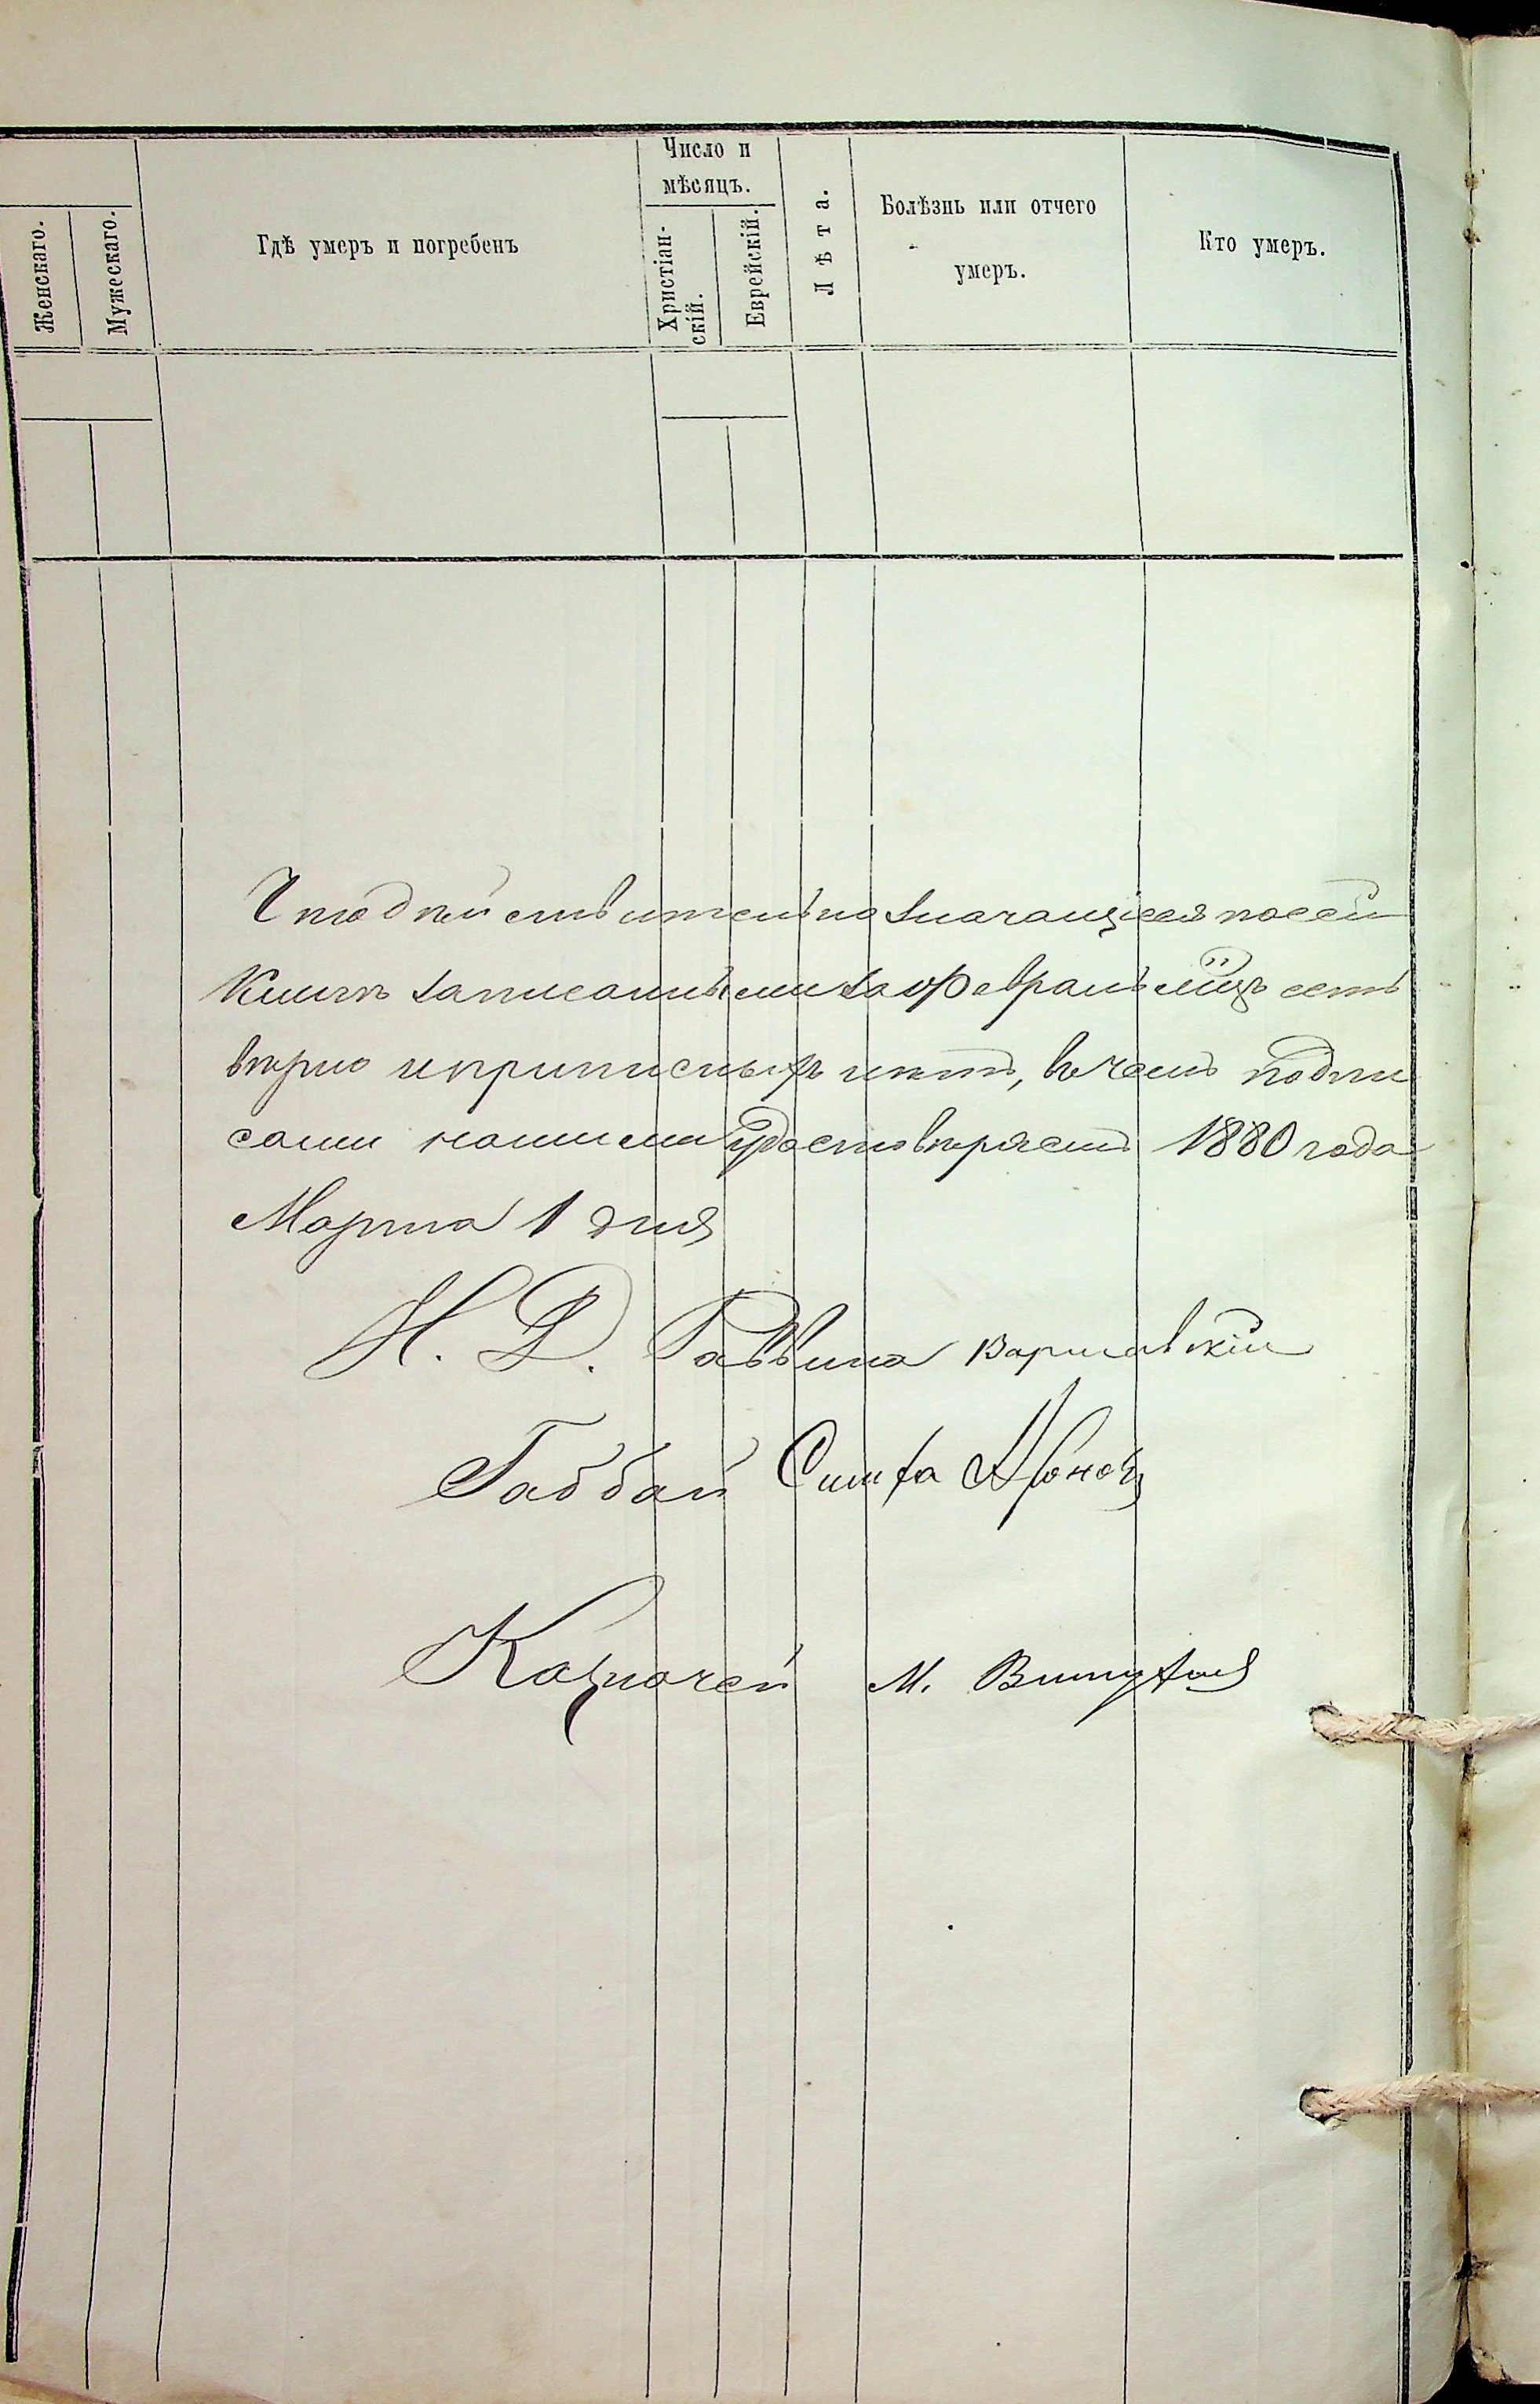 Женскаго.
Мужескаго.
Гдѣ умеръ и погребенъ
Число и
мѣсяцъ.
Христіан-
скій.
Еврейскій.
Лѣта.
Болѣзнь или отчего
умеръ.
Кто умеръ.
Что дѣйствительно значащіеся по сей
книгѣ записанными за Февраль мцъ есть
вѣрно и приписныхъ нѣтъ, въ чемъ подпи
сами нашими удостовѣряемъ 1880 года
Марта 1 дня
И. Д. Раввина Варшавскій
Габбай Симха
Казначей М.